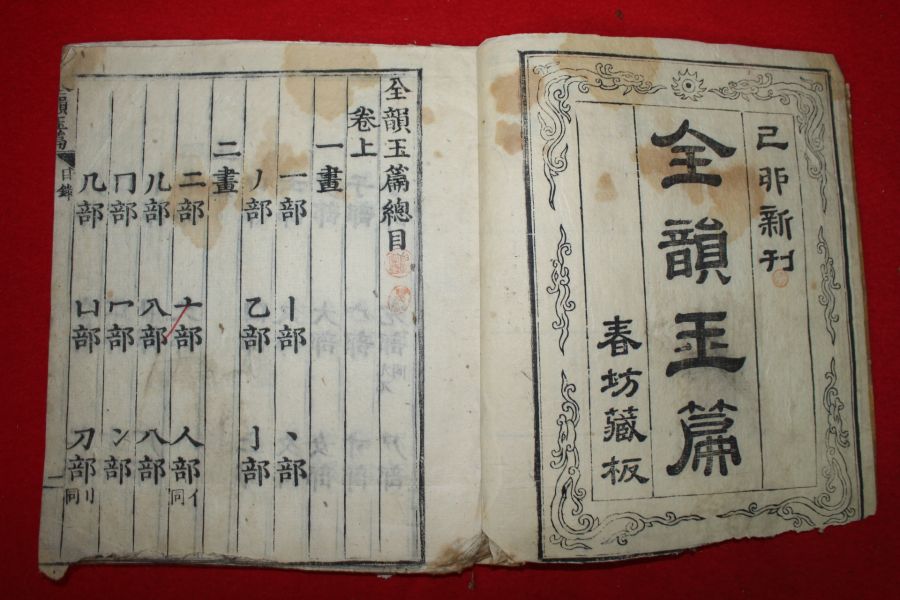 己卯新刊
全韻玉篇
春坊藏板
全韻玉篇總目
卷上
一畫
一部 丨部 丶部
丿部 乙部 亅部
二畫
二部 亠部 人部 亻同
儿部 入部 八部
冂部 冖部 冫部
几部 凵部 刀部 刂同
韻玉篇 目錄 一